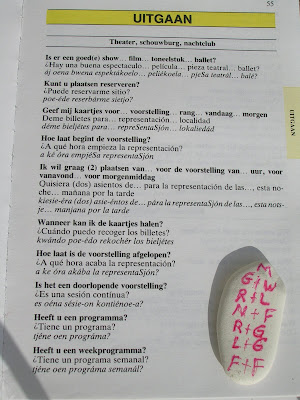 55
UITGAAN
Theater, schouwburg, nachtclub
Is er een goed(e) show... film... toneelstuk... ballet?
¿Hay una buena espectaculo... película... pieza teatral... ballet?
áj oena bwena espektákoelo... pelíékoela... pjeSa teatrál... balé?
Kunt u plaatsen reserveren?
¿Puede reservarme sitio?
poe-éde reserbárme sietjo?
Geef mij kaartjes voor... voorstelling... rang... vandaag... morgen
Deme billetes para... representación... localidad
déme bieljétes para... repreSentaSjón... lokaliedád
Hoe laat begint de voorstelling?
¿A qué hora empieza la representación?
a ké óra empjéSa representaSjón
Ik wil graag (2) plaatsen van... voor de voorstelling van... uur, voor
vanavond... voor morgenmiddag
Quisiera (dos) asientos de... para la representación de las..., esta no-
che... mañana por la tarde
kiesie-éra (dos) asie-éntos de... pára la representaSjón de las..., esta nots-
je... manjana por la tarde
Wanneer kan ik de kaartjes halen?
¿Cuándo puedo recoger los billetes?
kwándo poe-édo rekochér los bieljétes
Hoe laat is de voorstelling afgelopen?
¿A qué hora acaba la representación?
a ke óra akába la representaSjón?
Is het een doorlopende voorstelling?
¿Es una sesión contínua?
es oéna sésie-on kontiénoe-a?
Heeft u een programma?
¿Tiene un programa?
tjéne oen prográma?
Heeft u een weekprogramma?
¿Tiene un programa semanal?
tjéne oen prográma semanál?
UITGAAN
M
G+W
R+L
N+F
R+G
L+G
F+F